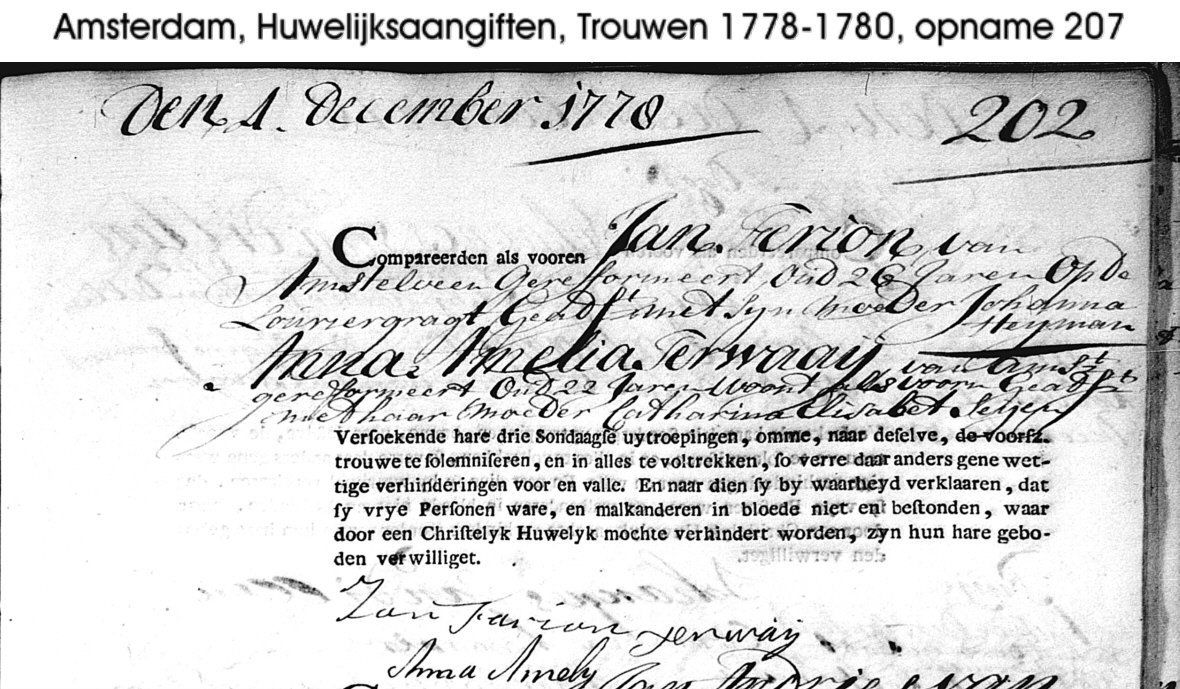 Amsterdam, Huwelijksaangiften, Trouwen 1778-1780, opname 207
Den 1. December 1778
202
Compareerden als vooren Jan. Ferion, van
Amstelveen Gereformeert, Oud 26 Jaren Op de
Louriergragt Geadst. met syn moeder Johanna
Heyman
Anna Amelia Terwaaij, van Amst.
gereformeert Oud 22 Jaren Woont als voorn Geadst.
met haar moeder Catharina Elisabet
Versoekende hare drie Sondaagse uytroepingen, omme, naar deselve, de voorsz.
trouwe te solemniseren, en in alles te voltrekken, so verre daar anders gene wet-
tige verhinderingen voor en valle. En naar dien sy by waarheyd verklaaren, dat
sy vrye Personen ware, en malkanderen in bloede niet en bestonden, waar
door een Christelyk Huwelyk mochte verhindert worden, zyn hun hare gebo-
den verwilliget.
Jan Farion
Anna Amely
Jan